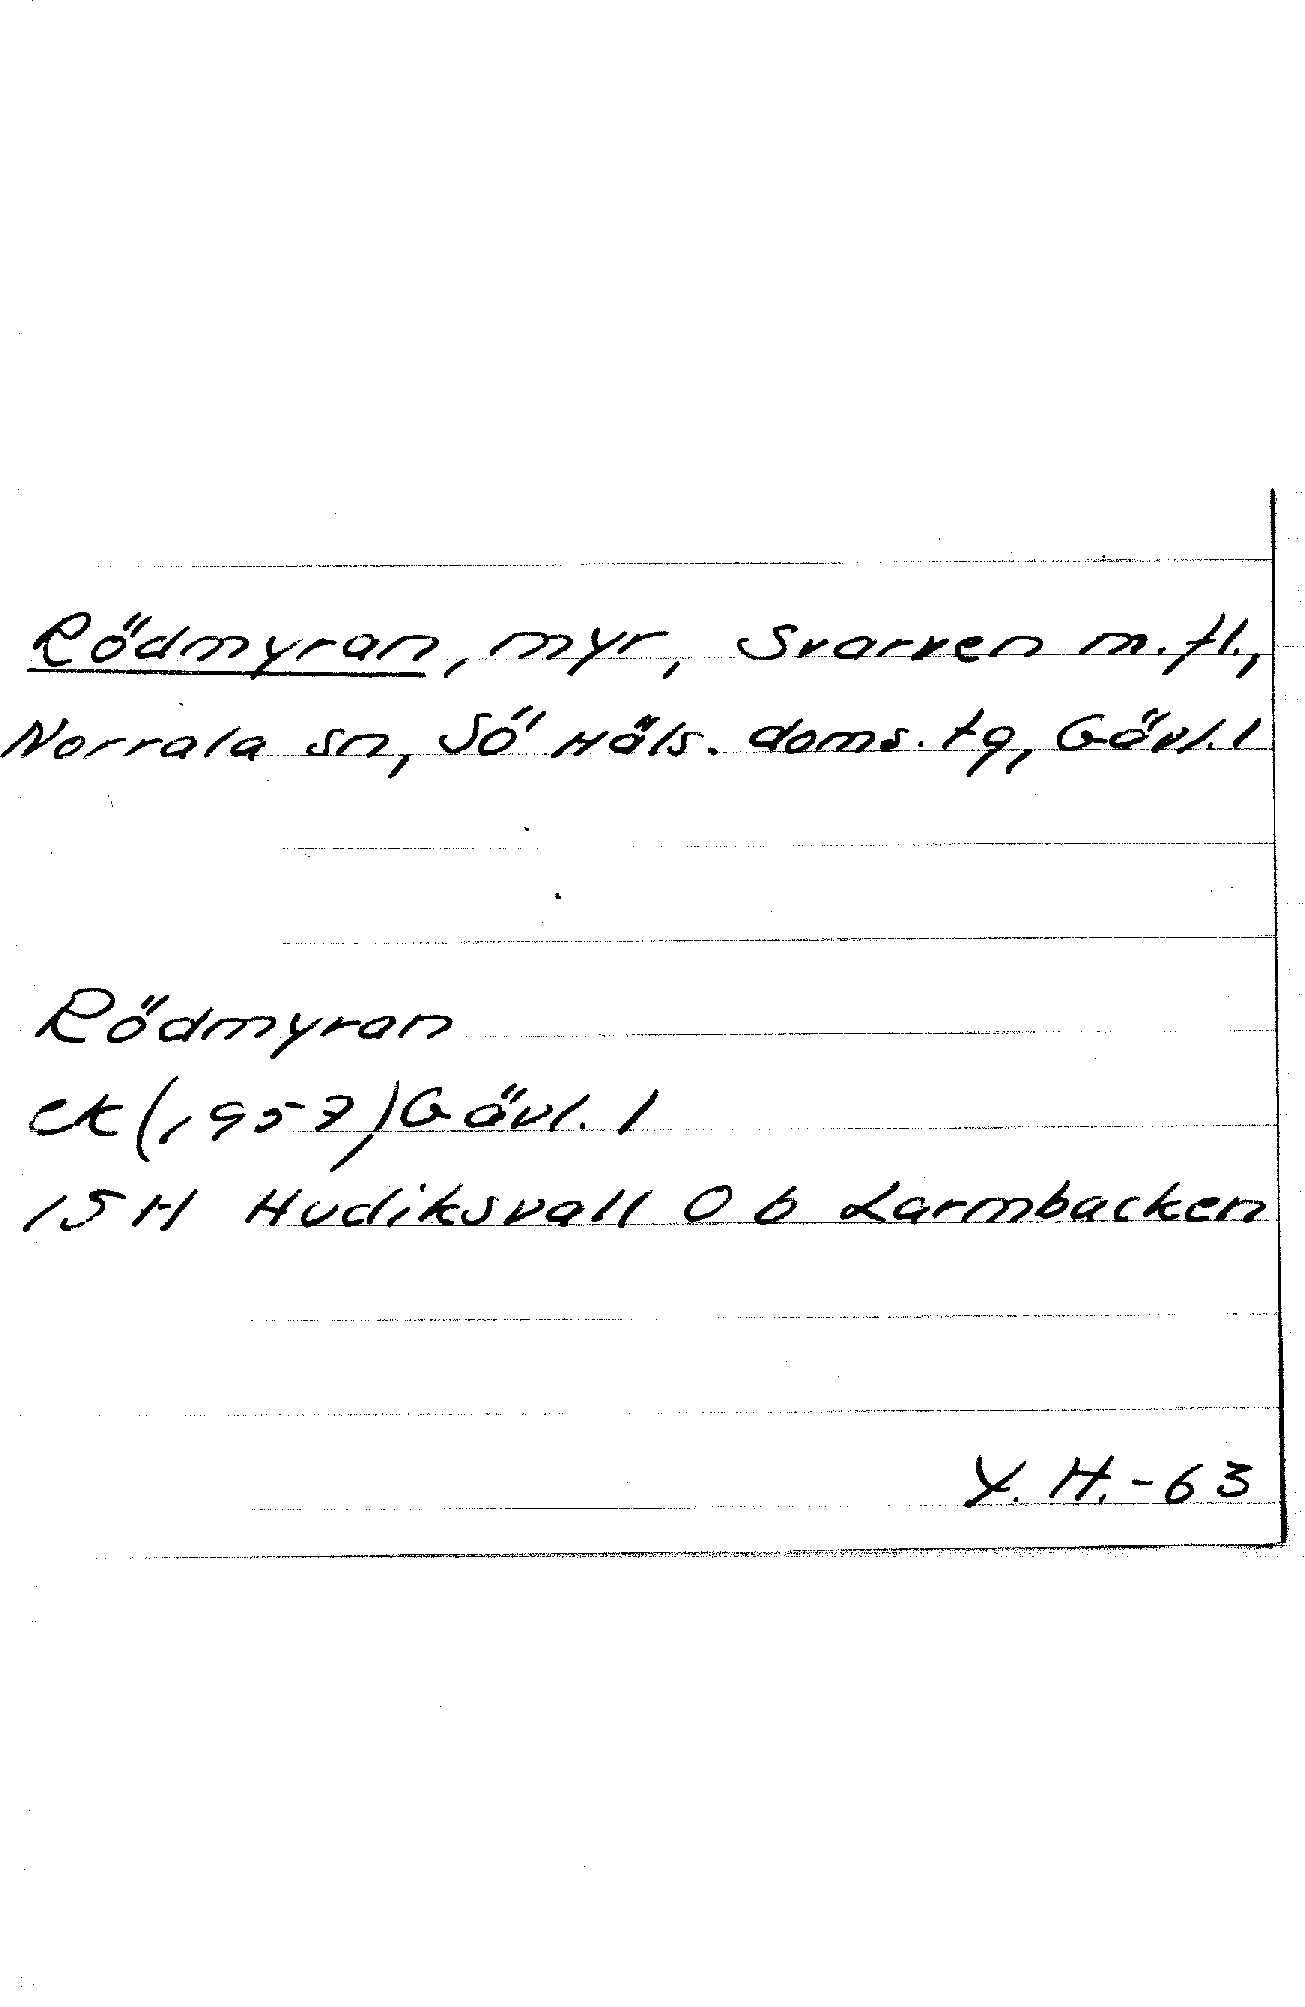 Rödmyran, myr, Svarven m.fl.,
Norrala sn, Sö Häls. doms. tg, Gävl. l
Rödmyran
ek (1957) Gävl. l
15 H Hudiksvall 0 b Larmbacken
Y. H. -63